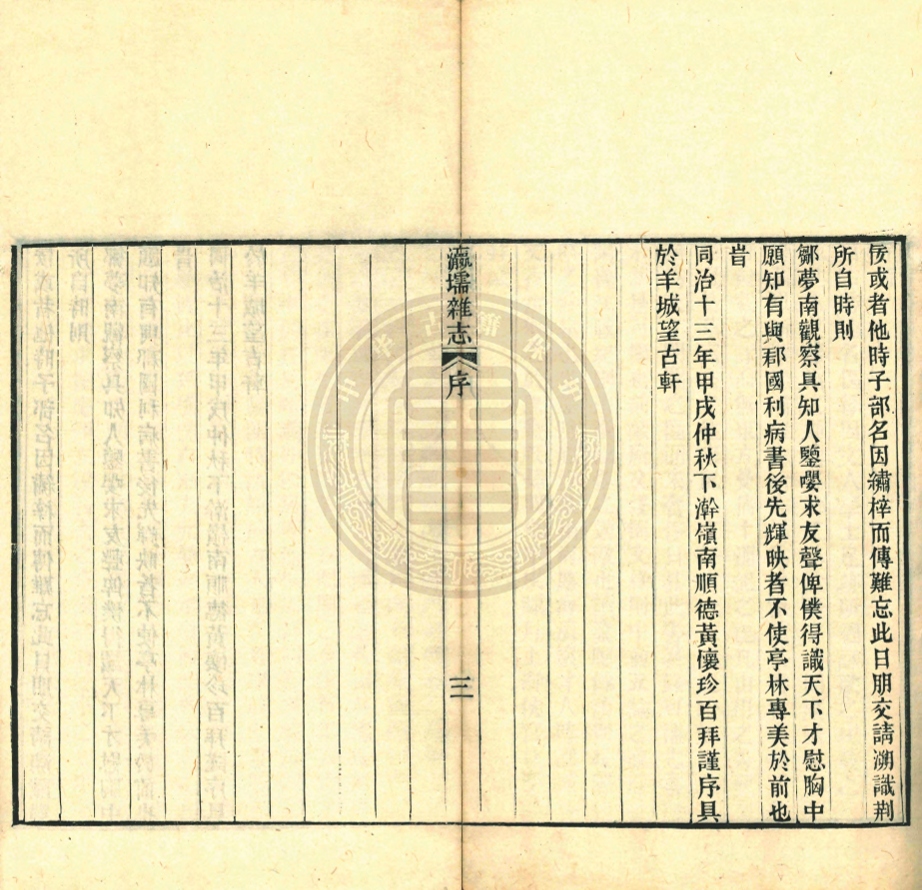 侫或者他時子部名因繡梓而傳難忘此日朋交請溯識荆
所自時則
鄒夢南觀察具知人鑒嚶求友聲俾僕得識天下才慰胸中
願知有與郡國利病書後先輝映者不使亭林專美於前也
旹
同治十三年甲戌仲秋下澣嶺南順德黃懷珍百拜謹序具
於羊城望古軒
瀛壖雜志 序 三